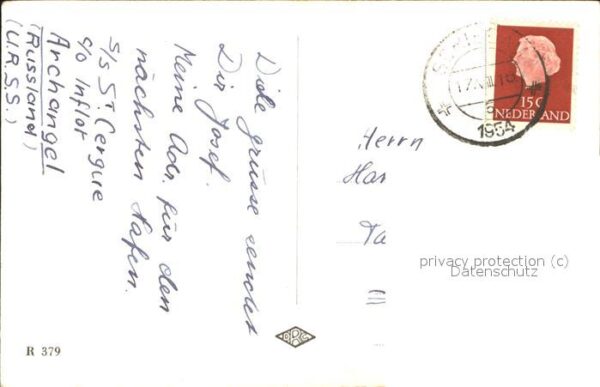 Viele grüsse sendet
Dir Josef.
Meine Adr. für den
nächsten Hafen.
S/S St Cergue
c/o Inflot
Archangel
(Russland)
(U.R.S.S.)
R 379
Herrn
Har
Ta
15 C
NEDERLAND
1954
privacy protection (c)
Datenschutz